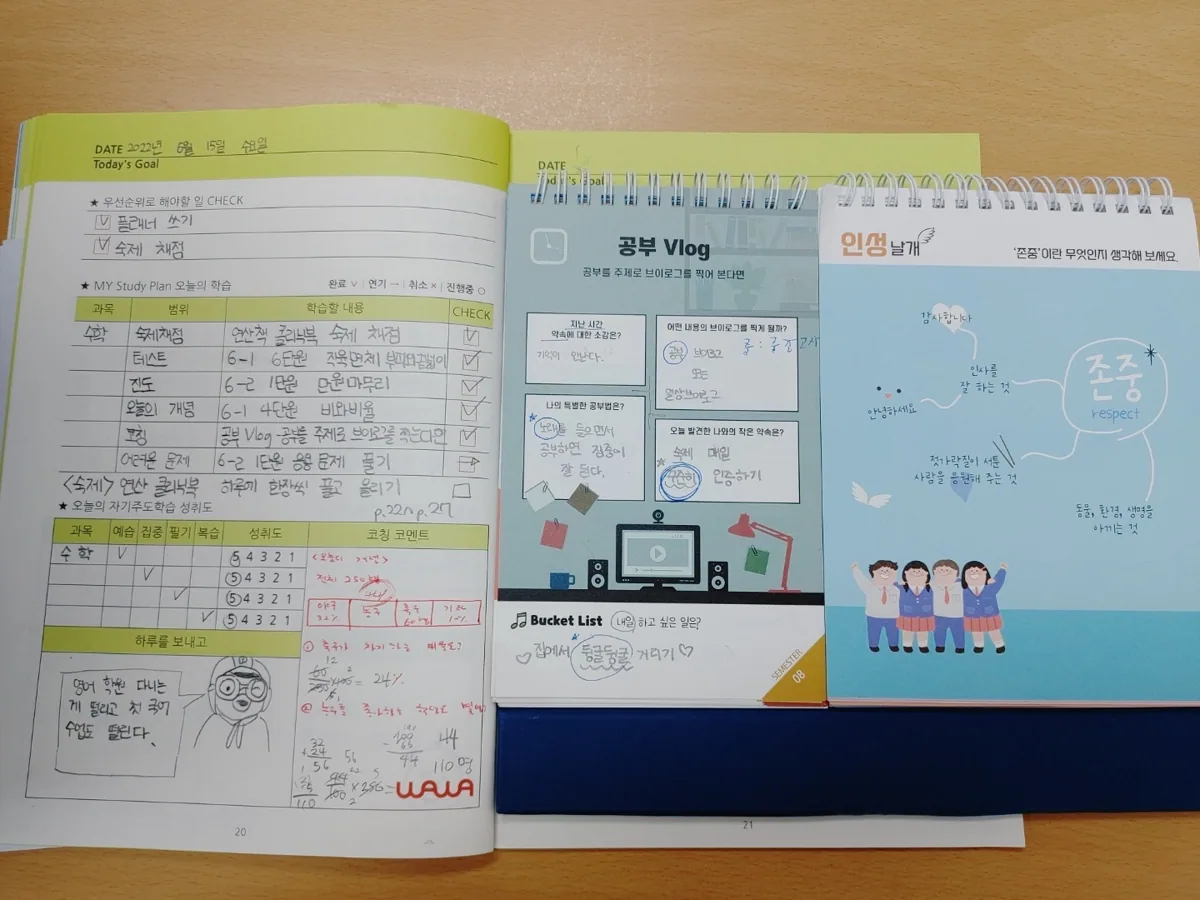 DATE 2022년 6월 15일 수요일
Today's Goal
★ 우선순위로 해야할 일 CHECK
플래너 쓰기
숙제 채점
★ MY Study Plan 오늘의 학습 완료 ∨ 연기 → 취소 × 진행중 ○
과목 범위 학습할 내용 CHECK
수학 숙제채점 연산책 클리닉북 숙제 채점
테스트 6-1 6단원 직육면체 부피와 겉넓이
진도 6-2 1단원 단원마무리
오늘의 개념 6-1 4단원 비와비율
코칭 공부 Vlog-공부를 주제로 브이로그를 찍는다면
어려운 문제 6-2 1단원 응용 문제 풀기
<숙제> 연산 클리닉북 하루끼 한장씩 풀고 올리기
p.22~p.27
★ 오늘의 자기주도학습 성취도
과목 예습 집중 필기 복습 성취도 코칭 코멘트
수학 ∨ 5 4 3 2 1
∨ 5 4 3 2 1
∨ 5 4 3 2 1
∨ 5 4 3 2 1
하루를 보내고
영어 학원 다니는
게 떨리고 첫 국어
수업도 떨린다.
<오늘의 개념>
전체 250명
야구 농구 축구 기타
= 24%
32
+24
56
56
44
110명
110
WAWA
20
DATE
Today's Goal
공부 Vlog
공부를 주제로 브이로그를 찍어 본다면
지난 시간
약속에 대한 소감은?
기억이 안난다.
어떤 내용의 브이로그를 찍게 될까?
공부 브이로그
또는
일상브이로그
나의 특별한 공부법은?
노래를 들으면서
공부하면 집중이
잘 된다.
오늘 발견한 나와의 작은 약속은?
숙제 매일
꾸준히 인증하기
Bucket List 내일 하고 싶은 일은?
집에서 뒹굴뒹굴 거리기♡
SEMESTER
08
21
인성날개
'존중'이란 무엇인지 생각해 보세요.
감사합니다
인사를
잘 하는 것
안녕하세요
존중
respect
젓가락질이 서툰
사람을 응원해 주는 것
동물, 환경, 생명을
아끼는 것